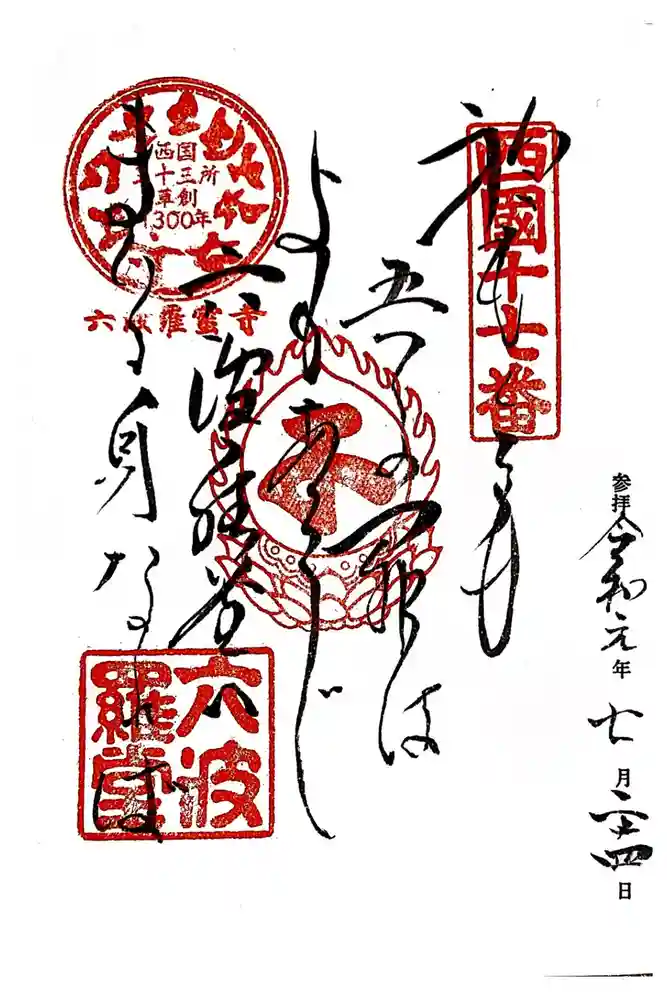 参拝 令和元年七月二十四日
西國十七番
五つの罪は
よもあらじ
西国
三十三所
草創
1300年
六波羅蜜寺
六波
羅堂
身なれば